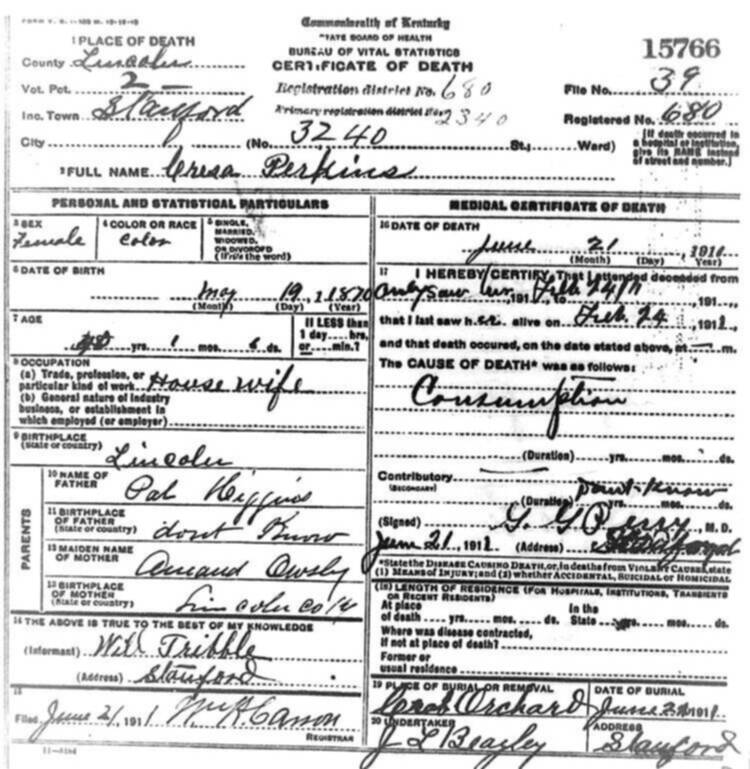 Commonwealth of Kentucky
STATE BOARD OF HEALTH
BUREAU OF VITAL STATISTICS
CERTIFICATE OF DEATH
15766
1 PLACE OF DEATH
County Lincoln
Vot. Pct. 2
Inc. Town Stanford
City
Registration district No. 680
Primary registration district No. 2340
(No. 3240 St.; Ward)
File No. 39
Registered No. 680
[If death occurred in a hospital or institution, give its NAME instead of street and number.]
2 FULL NAME Cresa Perkins
PERSONAL AND STATISTICAL PARTICULARS
3 SEX
Female
4 COLOR OR RACE
Color
5 SINGLE, MARRIED, WIDOWED, OR DIVORCED
(Write the word)
6 DATE OF BIRTH
May 19, 1870
(Month) (Day) (Year)
7 AGE
yrs. 1 mos. ds.
If LESS than 1 day....hrs. or....min.?
8 OCCUPATION
(a) Trade, profession, or particular kind of work House wife
(b) General nature of industry
business, or establishment in
which employed (or employer)
9 BIRTHPLACE
(State or country)
Lincoln
PARENTS
10 NAME OF FATHER
Pat Higgins
11 BIRTHPLACE OF FATHER
(State or country)
dont Know
12 MAIDEN NAME OF MOTHER
Amand Owsly
13 BIRTHPLACE OF MOTHER
(State or country)
Lincoln co Ky
14 THE ABOVE IS TRUE TO THE BEST OF MY KNOWLEDGE
(Informant) Will Tribble
(Address) Stanford
15
Filed June 21, 1911 Carson
REGISTRAR
11-3184
MEDICAL CERTIFICATE OF DEATH
16 DATE OF DEATH
June 21, 1911
(Month) (Day) (Year)
17 I HEREBY CERTIFY, That I attended deceased from
Only saw her, 191 to Feb 24th, 191
that I last saw her alive on Feb. 24, 1911,
and that death occured, on the date stated above, at m.
The CAUSE OF DEATH* was as follows:
Consumption
(Duration) yrs. mos. ds.
Contributory
(SECONDARY)
(Duration) Dont Know
(Signed) M. D.
June 21, 1911 (Address)
*State the DISEASE CAUSING DEATH, or, in deaths from VIOLENT CAUSES, state
(1) MEANS OF INJURY; and (2) whether ACCIDENTAL, SUICIDAL or HOMICIDAL
(18) LENGTH OF RESIDENCE (FOR HOSPITALS, INSTITUTIONS, TRANSIENTS
OR RECENT RESIDENTS)
At place of death yrs. mos. ds. In the State yrs. mos. ds.
Where was disease contracted,
If not at place of death?
Former or
usual residence
19 PLACE OF BURIAL OR REMOVAL
Crab Orchard
DATE OF BURIAL
June 1911
20 UNDERTAKER
J L Beazley
ADDRESS
Stanford